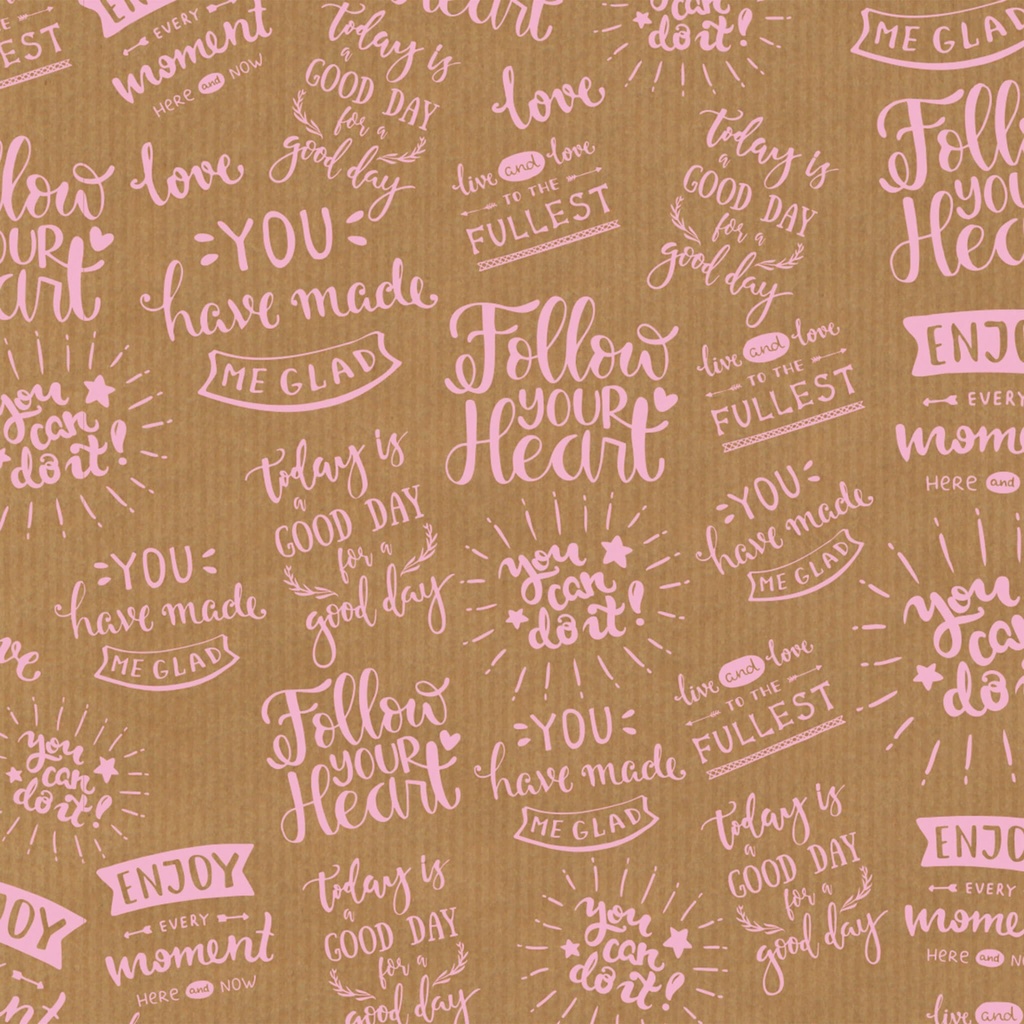 EST
EN
EVERY
moment
HERE and NOW
today is
a
GOOD DAY
for a
good day
Heart
you
can
do it!
ME GLAD
love
love
live and love
TO THE
FULLEST
today is
a
GOOD DAY
for a
good day
Follow
YOUR
Heart
llow
OUR
art
YOU
have made
ME GLAD
Follow
YOUR
Heart
live and love
TO THE
FULLEST
ENJO
EVERY
mome
HERE and
you
can
do it!
today is
a
GOOD DAY
for a
good day
you
can
do it!
YOU
have made
ME GLAD
you
can
do
YOU
have made
ME GLAD
ve
live and love
TO THE
FULLEST
Follow
YOUR
Heart
YOU
have made
ME GLAD
you
can
do it!
today is
a
GOOD DAY
for a
good day
ENJO
EVERY
mome
HERE and NO
ENJOY
EVERY
moment
HERE and NOW
today is
a
GOOD DAY
for a
good day
you
can
do it!
OY
nt
live and